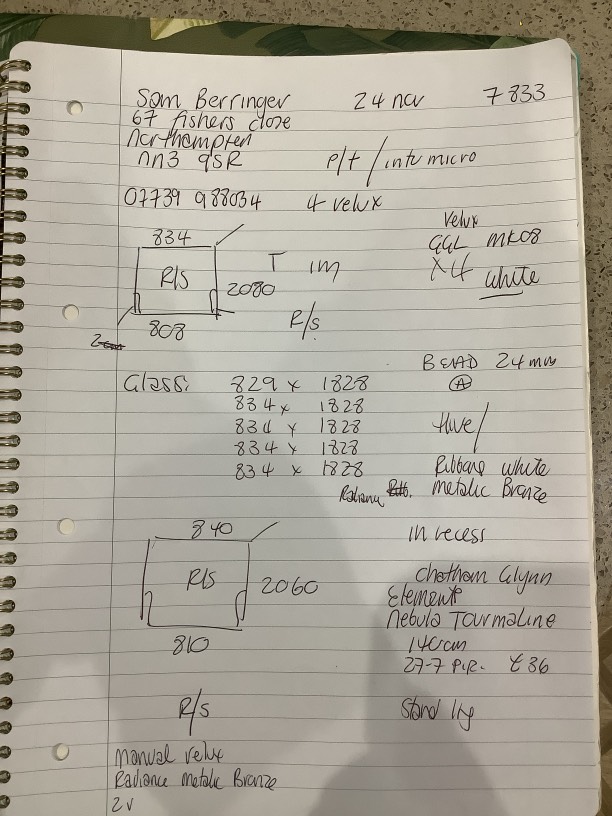 Sam Berringer 24 nov 7833
67 fishers close
northampton
nn3 9SR P/t / intu micro
07739 988034 4 velux
834 Velux
R/S T 1m GGL MK08
2080 X4 White
808 R/s
BEAD 24mm
Glass: 829 x 1828 A
834 x 1828
834 x 1828 Hive/
834 x 1828
834 x 1828 Ribbons White
Radiance metalic Bronze
840 in recess
R/S 2060 Chatham Glynn
Element
Nebula Tourmaline
810 140cm
27-7 P.R. £36
R/s Stand
manual velux
Radiance metalic Bronze
2v